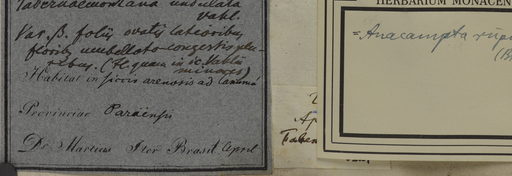 Tabernaemontana undulata
Vahl.
Var. β. foliis ovatis latioribus
floribus umbellato-congestis plu-
ribus. (H quam in ic. Vahlii
minores)
Habitat in locis arenosis ad
Provinciae Paraënsis
Dr. Martius Iter Brasil. April
HERBARIUM MONACEN
= Anacampta rup